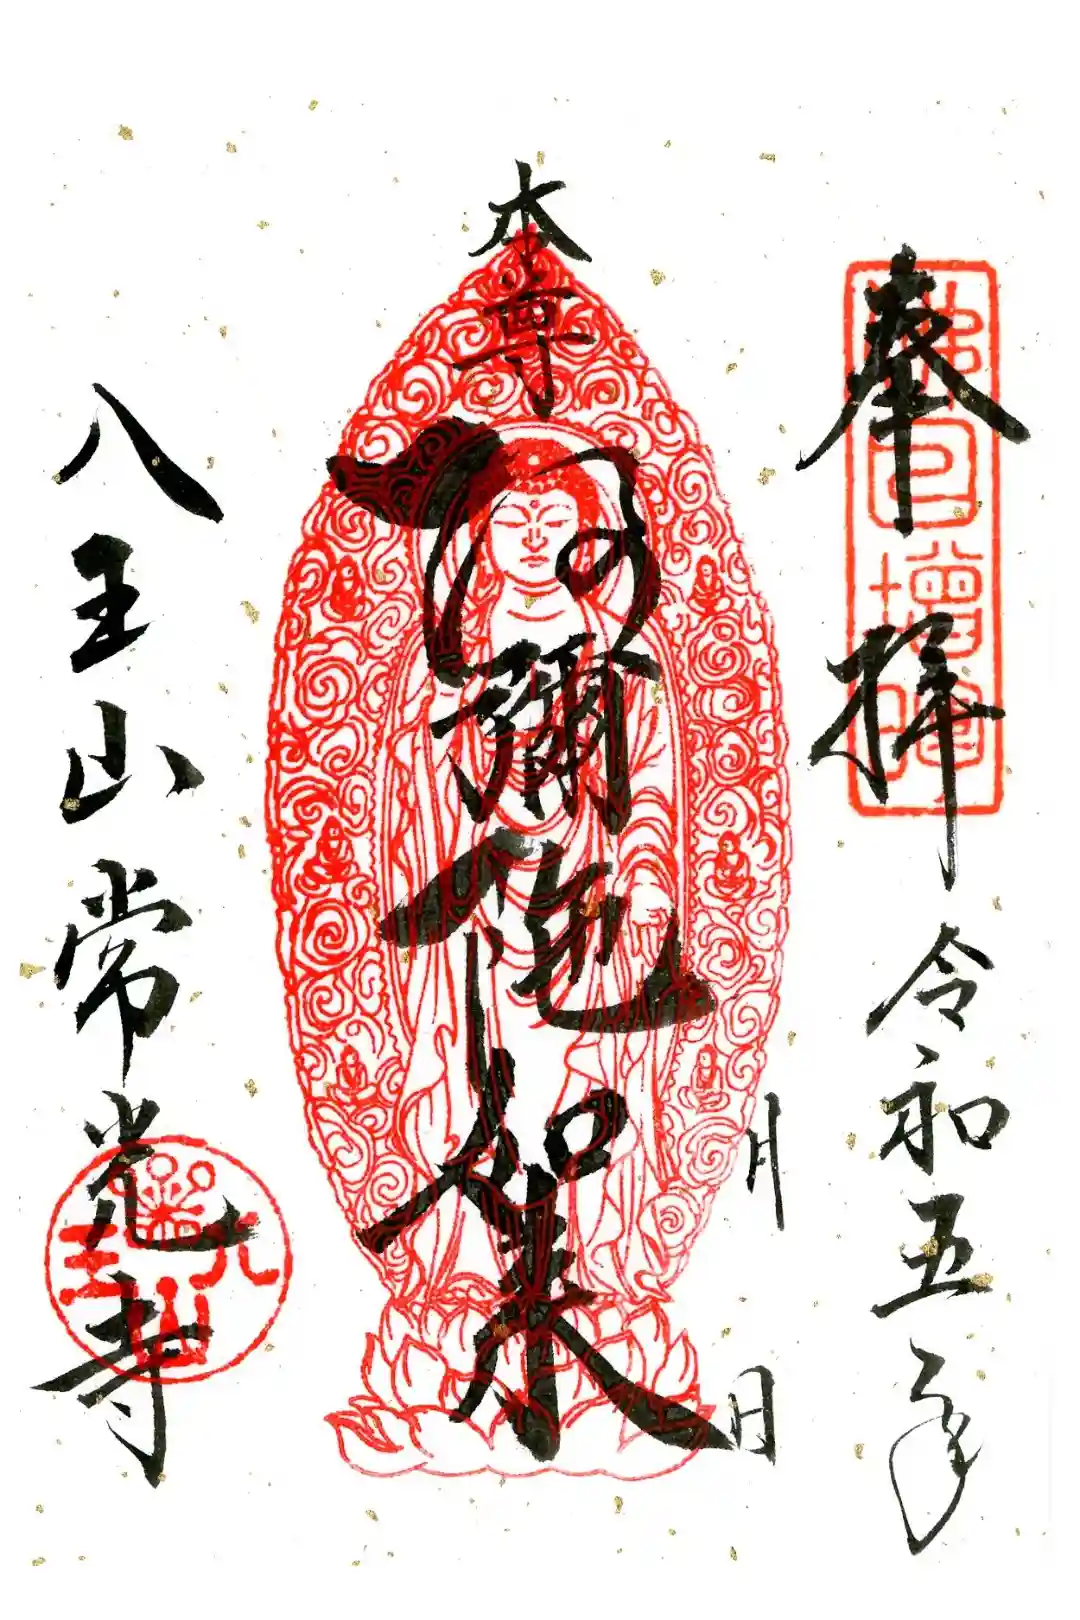 奉拝
令和五年
月
日
本尊
阿彌陀如来
八王山常光寺
八王山